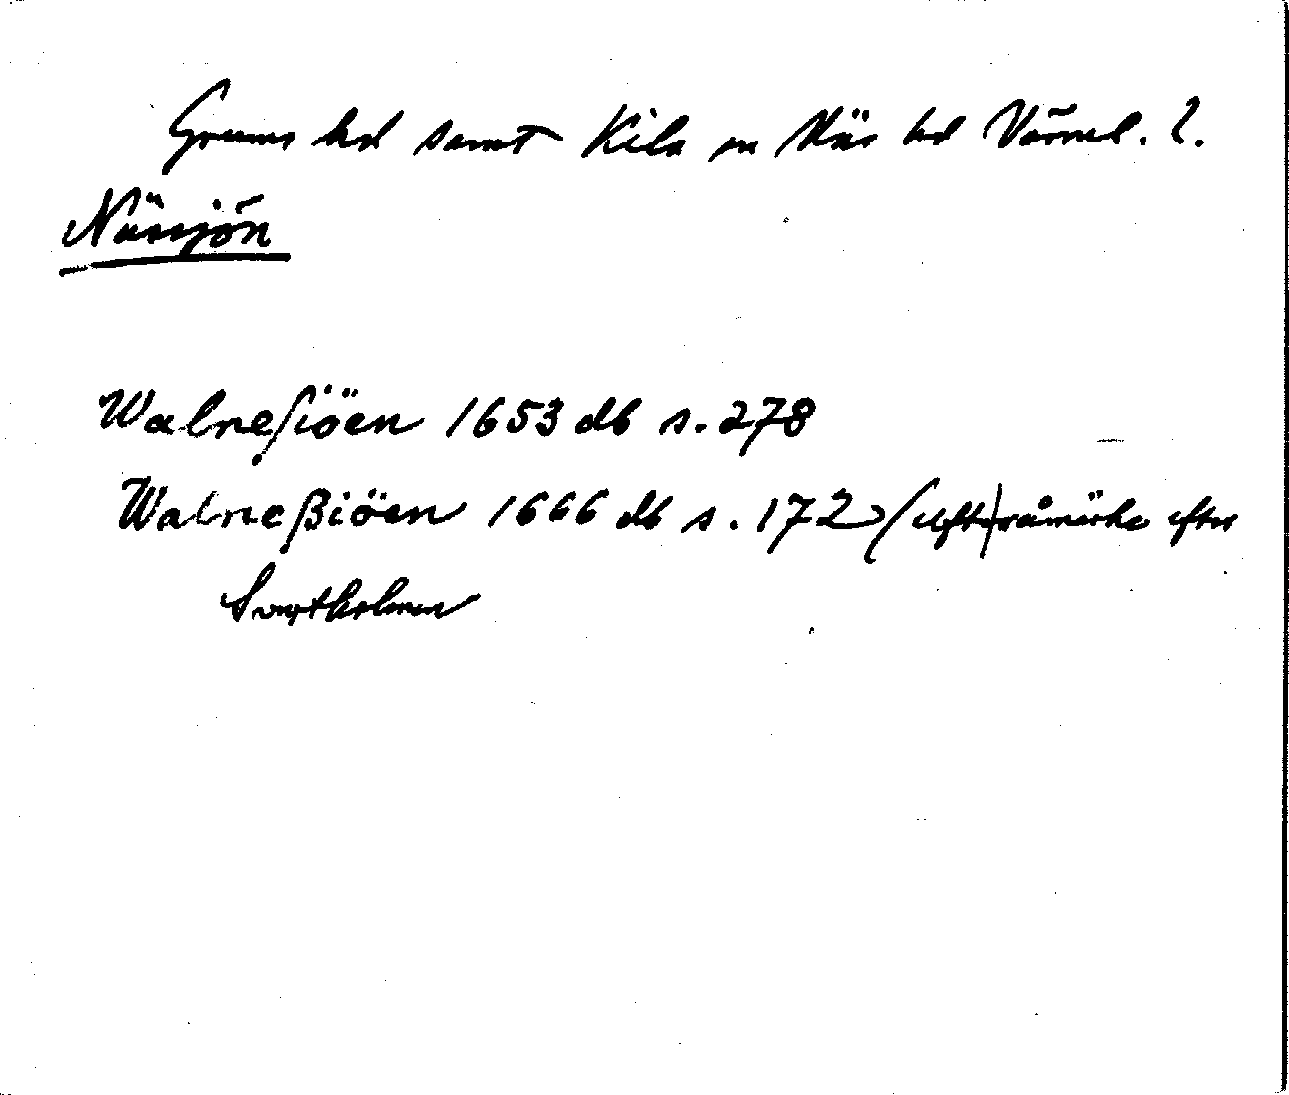 Grums hd samt Kila sn Näs hd Värml. l.
Nässjön
Walneſiöen 1653 db s. 278
Walneßiöen 1666 db s. 172 råmärke efter